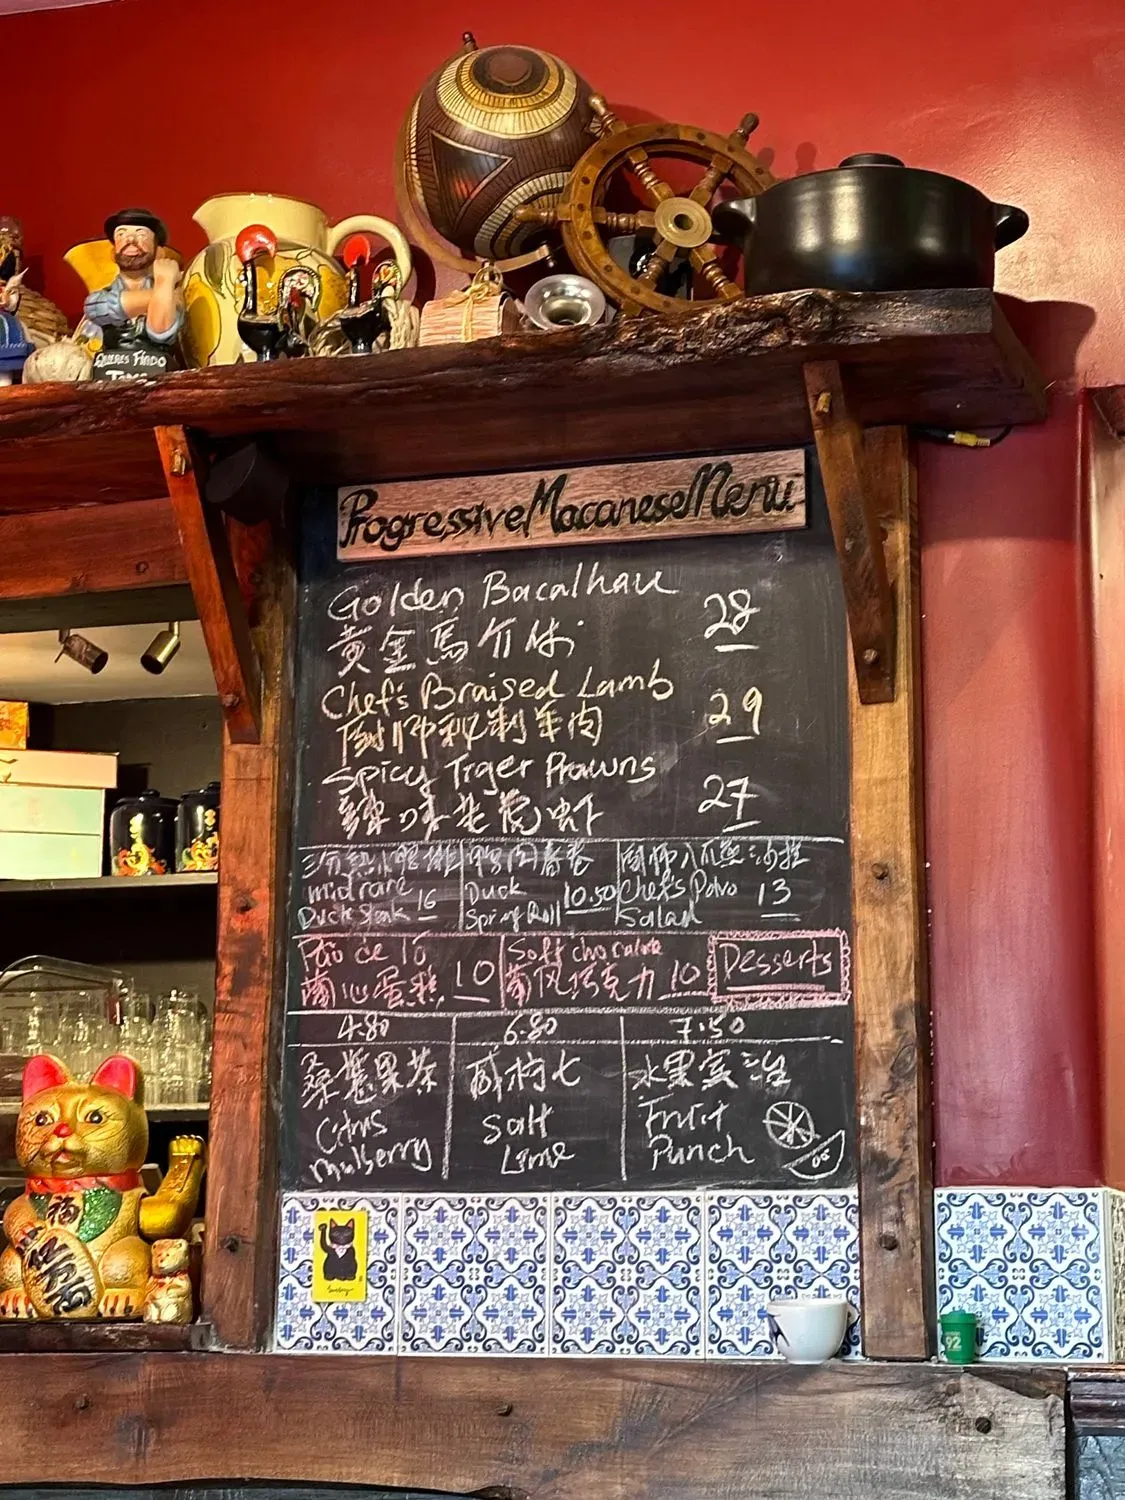 Progressive Macanese Menu
Golden Bacalhau 28
黃金馬介休
Chef's Braised Lamb 29
廚师秘制羊肉
Spicy Tiger Prawns 27
辣味老虎虾
三分熟 鸭肉春卷 廚师八爪魚沙拉
midrare Duck Steak 16
Duck Spring Roll 10.50
Chef's Polvo Salad 13
Pão de ló 10
蛋糕
Soft chocolate 10
葡风巧克力
Desserts
4.80 6.80 7.50
桑葚果茶 咸柠七 水果宾治
Citrus Mulberry
Salt Lime
Fruit Punch
QUERES FIADO
TOMA
福
92